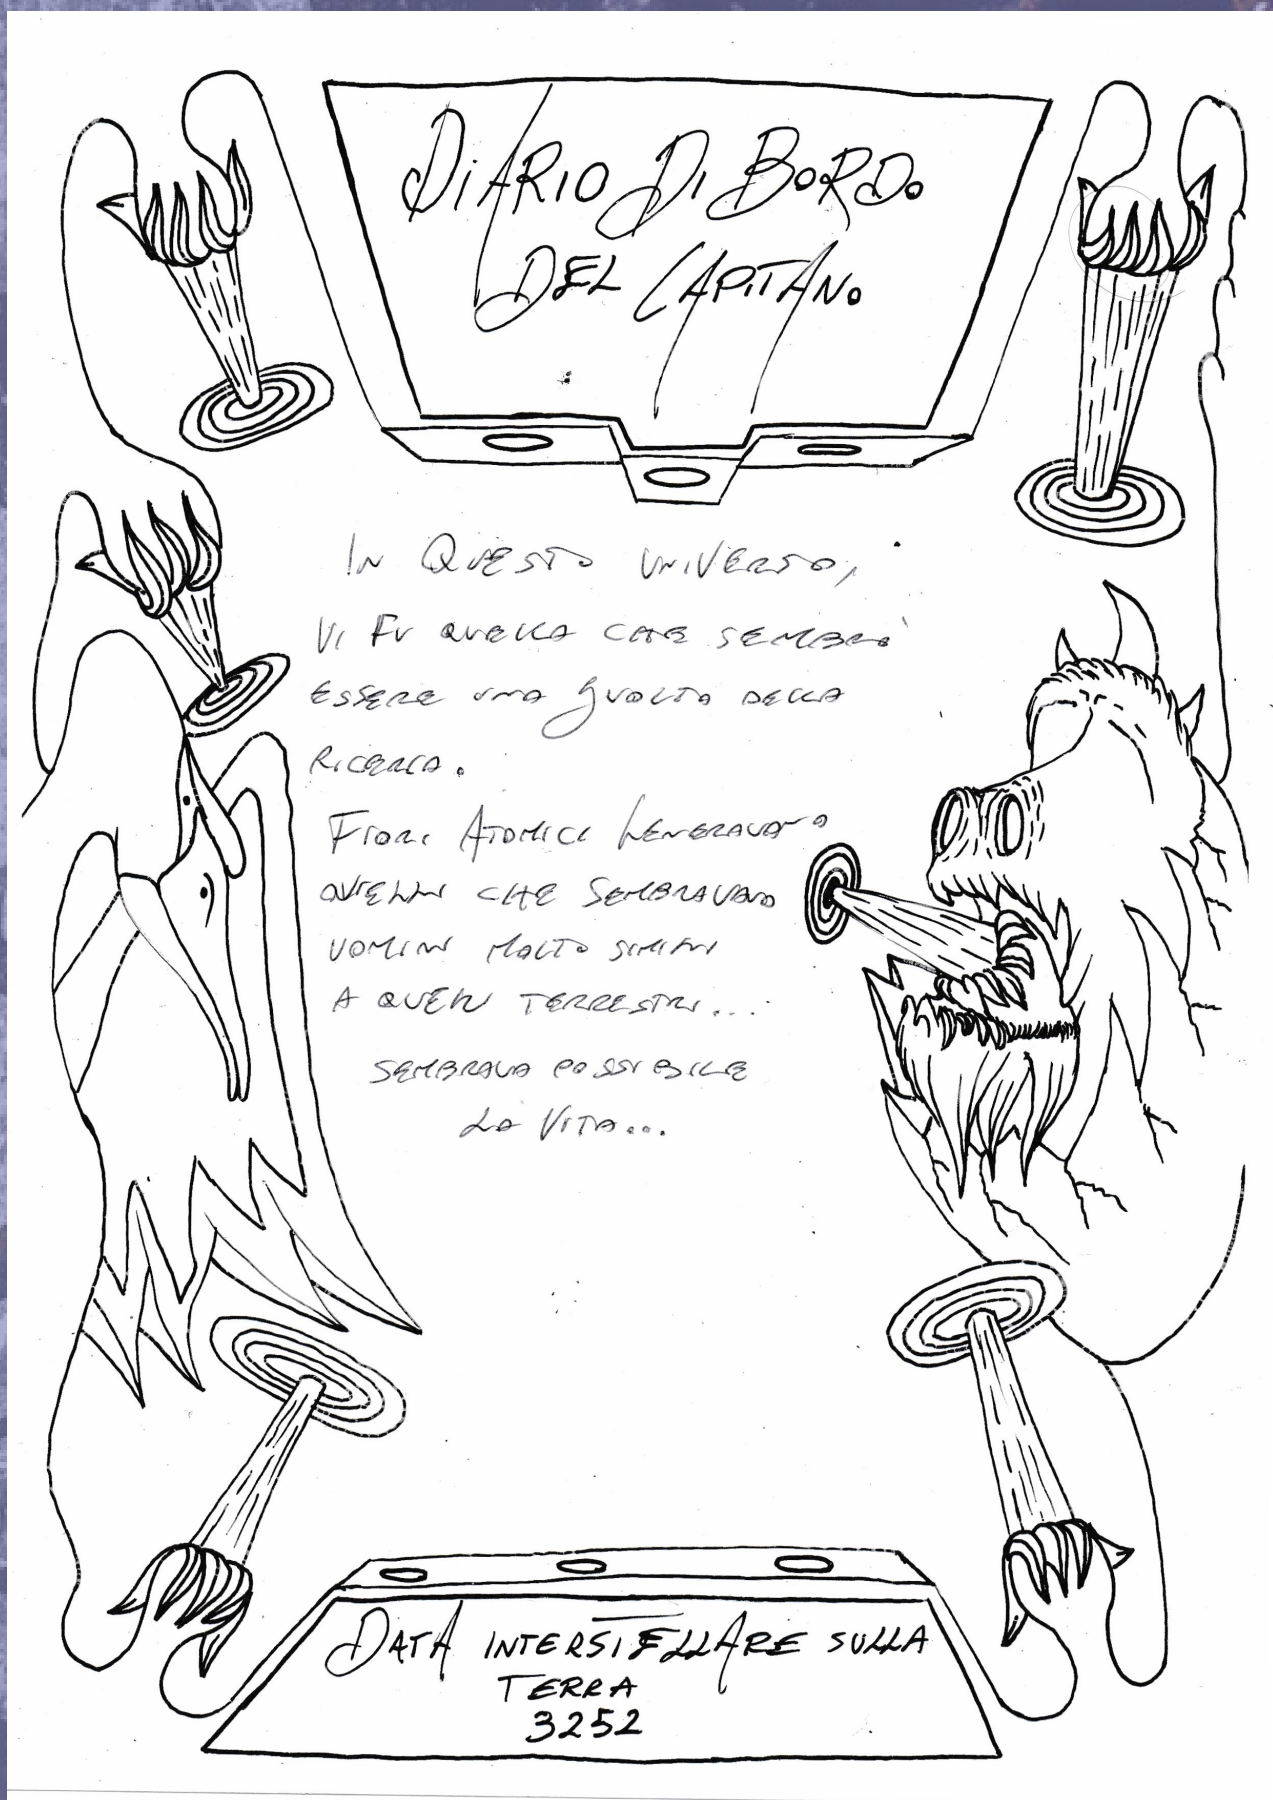 DiARIO Di BORDO
DEL CAPITANO
IN QUESTO UNIVERSO,
VI FU QUELLA CHE SEMBRÒ
ESSERE UNA SVOLTA DELLA
RICERCA.
FIORI ATOMICI GENERAVANO
QUELLI CHE SEMBRAVANO
UOMINI MOLTO SIMILI
A QUELLI TERRESTRI...
SEMBRAVA POSSIBILE
LA VITA...
DATA INTERSTELLARE SULLA
TERRA
3252